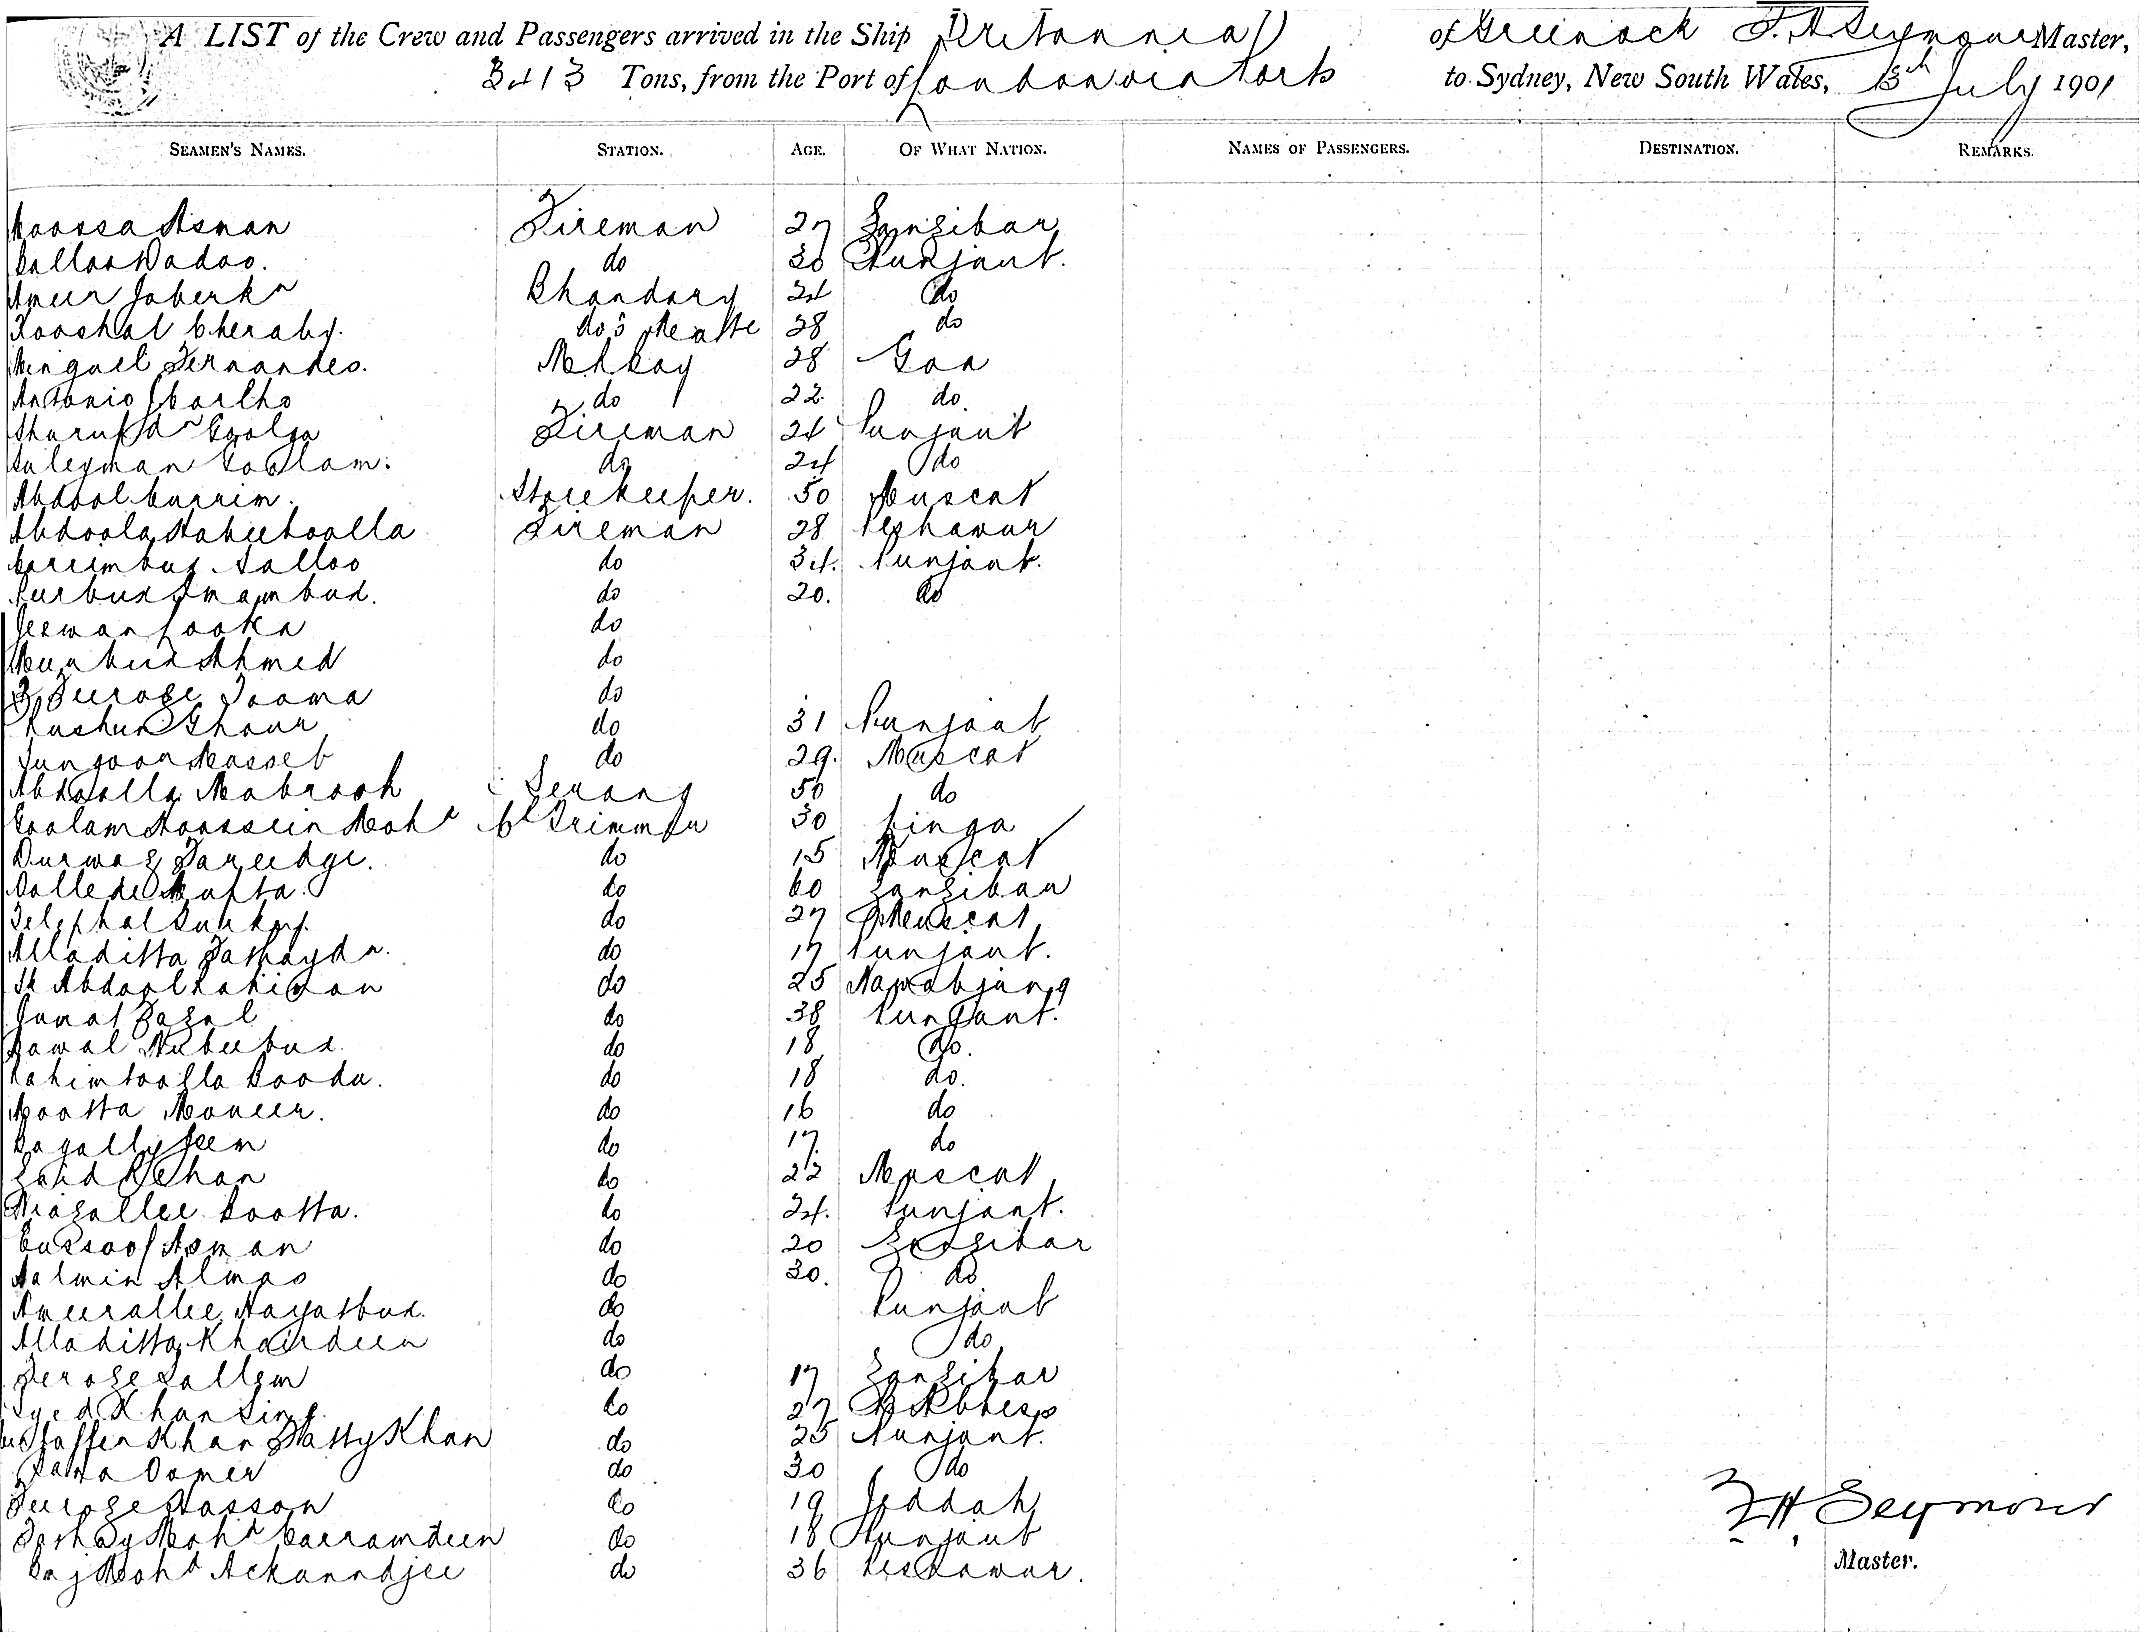 A LIST of the Crew and Passengers arrived in the Ship Britannia of Greenock F. H Seymour Master,
3413 Tons, from the Port of London via Ports to Sydney, New South Wales, 13th July 1901
SEAMEN'S NAMES. STATION. AGE. OF WHAT NATION. NAMES OF PASSENGERS. DESTINATION. REMARKS.
Moossa Asman Fireman 27 Zanzibar
Dadoo. do 30 Punjaub.
Ameer Bhandary 24 do
Kooshal Cheraby. do's Matte 28 do
Minguel Fernandes. 28 Goa
Antonio Coarlho do 22 do
Goolga Fireman 24 Punjaub
Suleyman Goolam. do 24 do
Abdool Currim. Storekeeper. 50 Muscat
Abdoola Habeeboolla Fireman 28 Peshawur
Carrimbux Salloo do 34. Punjaub.
Purbux Imambux. do 20. do
Jeewan do
Ahmed do
Feeroze Jooma do
Ghaur do 31 Punjaub
do 29. Muscat
Abdoolla Mabrook Serang 50 do
Goolam Hoossein Mohd Cl Trimmer 30 Linga
Fareedge. do 15 Muscat
do 60 Zanzibar
do 27 Muscat
Alladitta do 17 Punjaub.
Sk Abdool Rahiman do 25 Nawabjung
Fazal do 38 Punjaub.
Nubeebux. do 18 do.
Rahimtoolla Dooda. do 18 do.
Mootta Moneer. do 16 do
do 17. do
Zaid Rehan do 22 Muscat
Niazallee Dootta. do 24. Punjaub.
Eussoof Asman do 20 Zanzibar
Salmin Almas do 30. do
Ameerallee Hayatbux. do Punjaub
Alladitta Khairdeen do do
Feroze Sallem do 17 Zanzibar
Syed Khan do 27
Khan Fatty Khan do 25 Punjaub.
Oomer do 30 do
Feeroze Hassan do 19 Jeddah
Mohd Carramdeen do 18 Punjaub
Taj Mohd Ackunndjee do 36 Peshawur.
F H Seymour
Master.